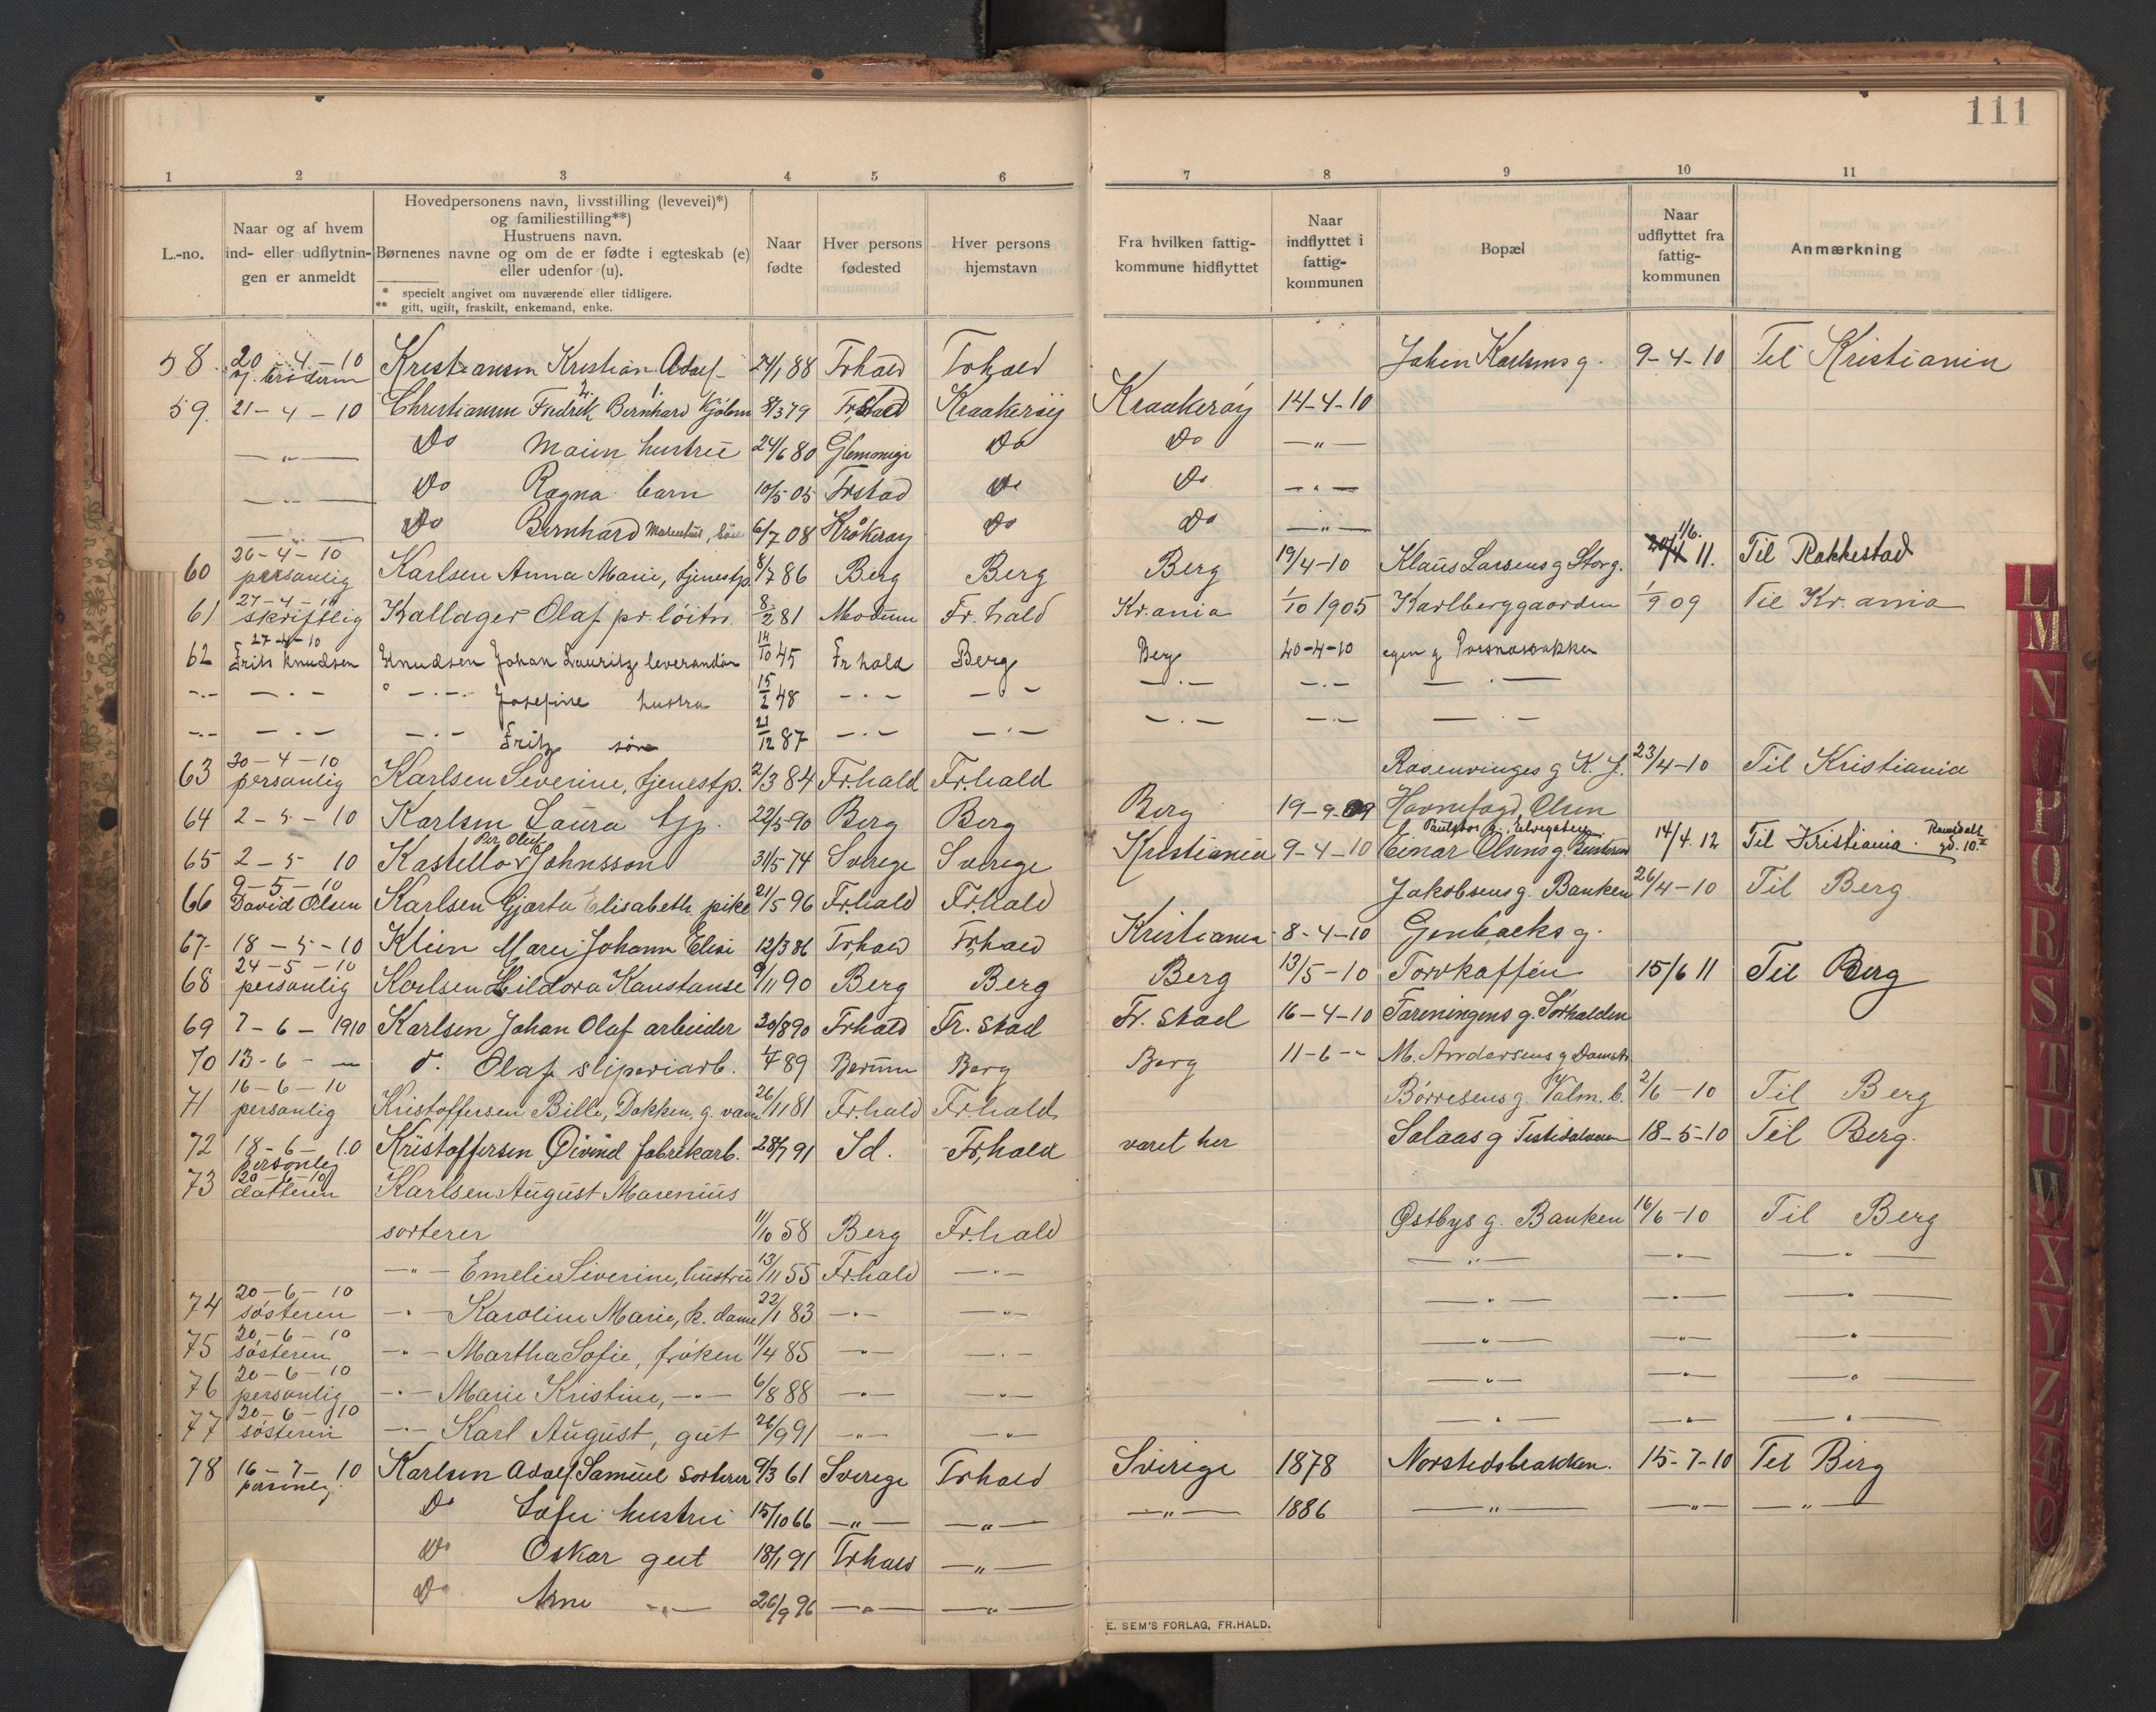 111
1 2 3 4 5 6 7 8 9 10 11
L.-no.
Naar og af hvem
ind- eller udflytnin-
gen er anmeldt
Hovedpersonens navn, livsstilling (levevei)*)
og familiestilling**)
Hustruens navn.
Børnenes navne og om de er fødte i egteskab (e)
eller udenfor (u).
* specielt angivet om nuværende eller tidligere.
** gift, ugift, fraskilt, enkemand, enke.
Naar
fødte
Hver persons
fødested
Hver persons
hjemstavn
Fra hvilken fattig-
kommune hidflyttet
Naar
indflyttet i
fattig-
kommunen
Bopæl
Naar
udflyttet fra
fattig-
kommunen
Anmærkning
58. 20-4-10 broderen Kristiansen Kristian Adolf 24/1 88 Frhald Frhald Johan Karlsens g. 9-4-10 Til Kristiania
59. 21-4-10 Christiansen Fredrik Bernhard 8/3 79 Fr.stad Kraakerøy Kraakerøy 14-4-10
—„— Do hustru 24/6 80 Do Do —„—
—„— Do Ragna barn 10/5 05 Frstad Do Do —„—
—„— Do Bernhard 6/7 08 Kråkerøy Do Do —„—
60 26-4-10 personlig Karlsen Anna Marie, tjenestp. 8/7 86 Berg Berg Berg 19/4-10 Klaus Larsens g Storg. 1/6. 11. Til Rakkestad
61 27-4-10 skriftlig Kallager Olaf pr. løitn. 8/2 81 Modum Fr.hald Kr.ania 1/10 1905 Karlberggaarden 1/9 09 Til Kr.ania
62 27-4-10 Frits Knudsen Knudsen Johan Lauritz leverandør 14/10 45 Fr hald Berg Berg 20-4-10 egen g
—.— —.— —.— Josefine hustru 15/2 48 —.— —.— —.— —.— —.—
—.— —.— —.— Fritz søn 21/12 87 —.— —.— —.— —.— —.—
63 30-4-10 personlig Karlsen Severine, tjenestp. 2/3 84 Fr.hald Fr.hald Rosenvinges g K. J. 23/4-10 Til Kristiania
64 2-5-10 Karlsen Laura tjp. 22/5 90 Berg Berg Berg 19-9-09 Havnefogd Olsen
65 2-5 10 Kastello Per Oluf Johnsson 31/5 74 Sverige Sverige Kristiania 9-4-10 Einar Olsens g. 14/4.12 Til Kristiania.
66 9-5-10 David Olsen Karlsen Gjærta Elisabeth pike 21/5 96 Fr.hald Fr.hald Jakobsens g. Banken 26/4-10 Til Berg.
67- 18-5-10 Klein Marie Johanne Elise 12/3 86 Fr,hald Fr,hald Kristiania 8-4-10 g.
68 24-5-10 personlig Karlsen Hildora Konstanse 9/11 90 Berg Berg Berg 13/5-10 Torvkaffén 15/6 11 Til Berg
69 7-6-1910 Karlsen Johan Olaf arbeider 20/8 90 Frhald Fr. Stad Fr. Stad 16-4-10 Foreningens g. Sørhalden
70 13-6- — d. Olaf sliperiarb. 89 Berum Berg Berg 11-6-- M. Andersens g Damstr.
71 16-6-10 personlig Kristoffersen Bille, Dokken, g. 26/11 81 Fr.hald Fr.hald Børresens g. Valm. b. 2/6-10 Til Berg
72 18-6-10 personlig Kristoffersen Øivind fabrikarb. 28/7 91 Id. Fr,hald været her Solaas g Tistedalveien 18-5-10 Til Berg.
73 20-6-10 datteren Karlsen August Marenius
sorterer 11/10 58 Berg Fr.hald Østbys g. Banken 16/6-10 Til Berg
—„— Emelie Siverine, hustru 13/11 55 Fr.hald —„— —„— —„— —„—
74 20-6-10 søsteren —„— Karoline Marie, k. dame 22/1 83 —„— —„— —„— —„— —„—
75 20-6-10 søsteren —„— Martha Sofie, frøken 11/4 85 —„— —„— —„— —„— —„—
76 20-6-10 personlig —„— Marie Kristine, —„— 6/8 88 —„— —„— —„— —„— —„—
77 20-6-10 søsteren —„— Karl August, gut 26/9 91 —„— —„— —„— —„— —„—
78 16-7-10 personlig. Karlsen Adolf Samuel sorterer 9/3 61 Sverige Frhald Sverige 1878 Norstedsbakken. 15-7-10 Til Berg
Do Sofie hustru 15/10 66 —„— —„— —„— 1886 —„— —„— —„—
Do Oskar gut 18/1 91 Frhald —„—
Do Arne —„— 26/9 96 —„— —„—
E. SEM'S FORLAG, FR.HALD.
L
M
N
O
P
Q
R
S
T
U
W
X
Y
Z
Æ
Ø